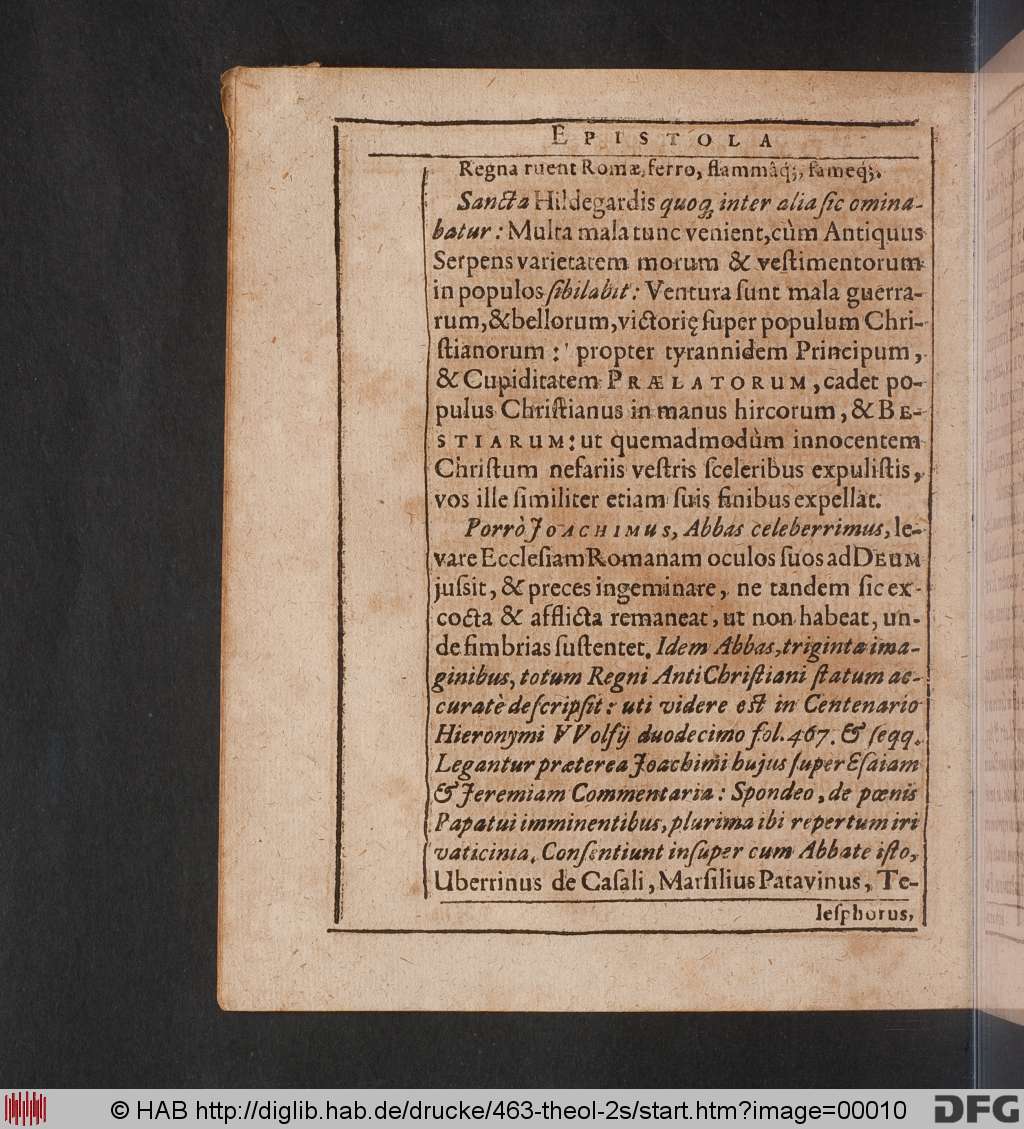 EPISTOLA
Regna ruent Romæ, ferro, flammâq́;, fameq́;.
Sancta Hildegardis quoq; inter alia ſic omina-
batur: Multa mala tunc venient, cùm Antiquus
Serpens varietatem morum & veſtimentorum
in populos ſibilabit: Ventura ſunt mala guerra-
rum, & bellorum, victorię ſuper populum Chri-
ſtianorum: propter tyrannidem Principum,
& Cupiditatem PRÆLATORUM, cadet po-
pulus Chriſtianus in manus hircorum, & BE-
STIARUM: ut quemadmodùm innocentem
Chriſtum nefariis veſtris ſceleribus expuliſtis,
vos ille ſimiliter etiam ſuis finibus expellat.
Porrò JOACHIMUS, Abbas celeberrimus, le-
vare Eccleſiam Romanam oculos ſuos ad DEUM
juſsit, & preces ingeminare, ne tandem ſic ex-
cocta & afflicta remaneat, ut non habeat, un-
de fimbrias ſuſtentet. Idem Abbas, triginta ima-
ginibus, totum Regni AntiChriſtiani ſtatum ac-
curatè deſcripſit: uti videre eſt in Centenario
Hieronymi VVolfij duodecimo fol. 467. & ſeqq.
Legantur præterea Joachimi hujus ſuper Eſaiam
& Jeremiam Commentaria: Spondeo, de pœnis
Papatui imminentibus, plurima ibi repertum iri
vaticinia. Conſentiunt inſuper cum Abbate iſto,
Ubertinus de Caſali, Marſilius Patavinus, Te-
leſphorus,
© HAB http://diglib.hab.de/drucke/463-theol-2s/start.htm?image=00010
DFG